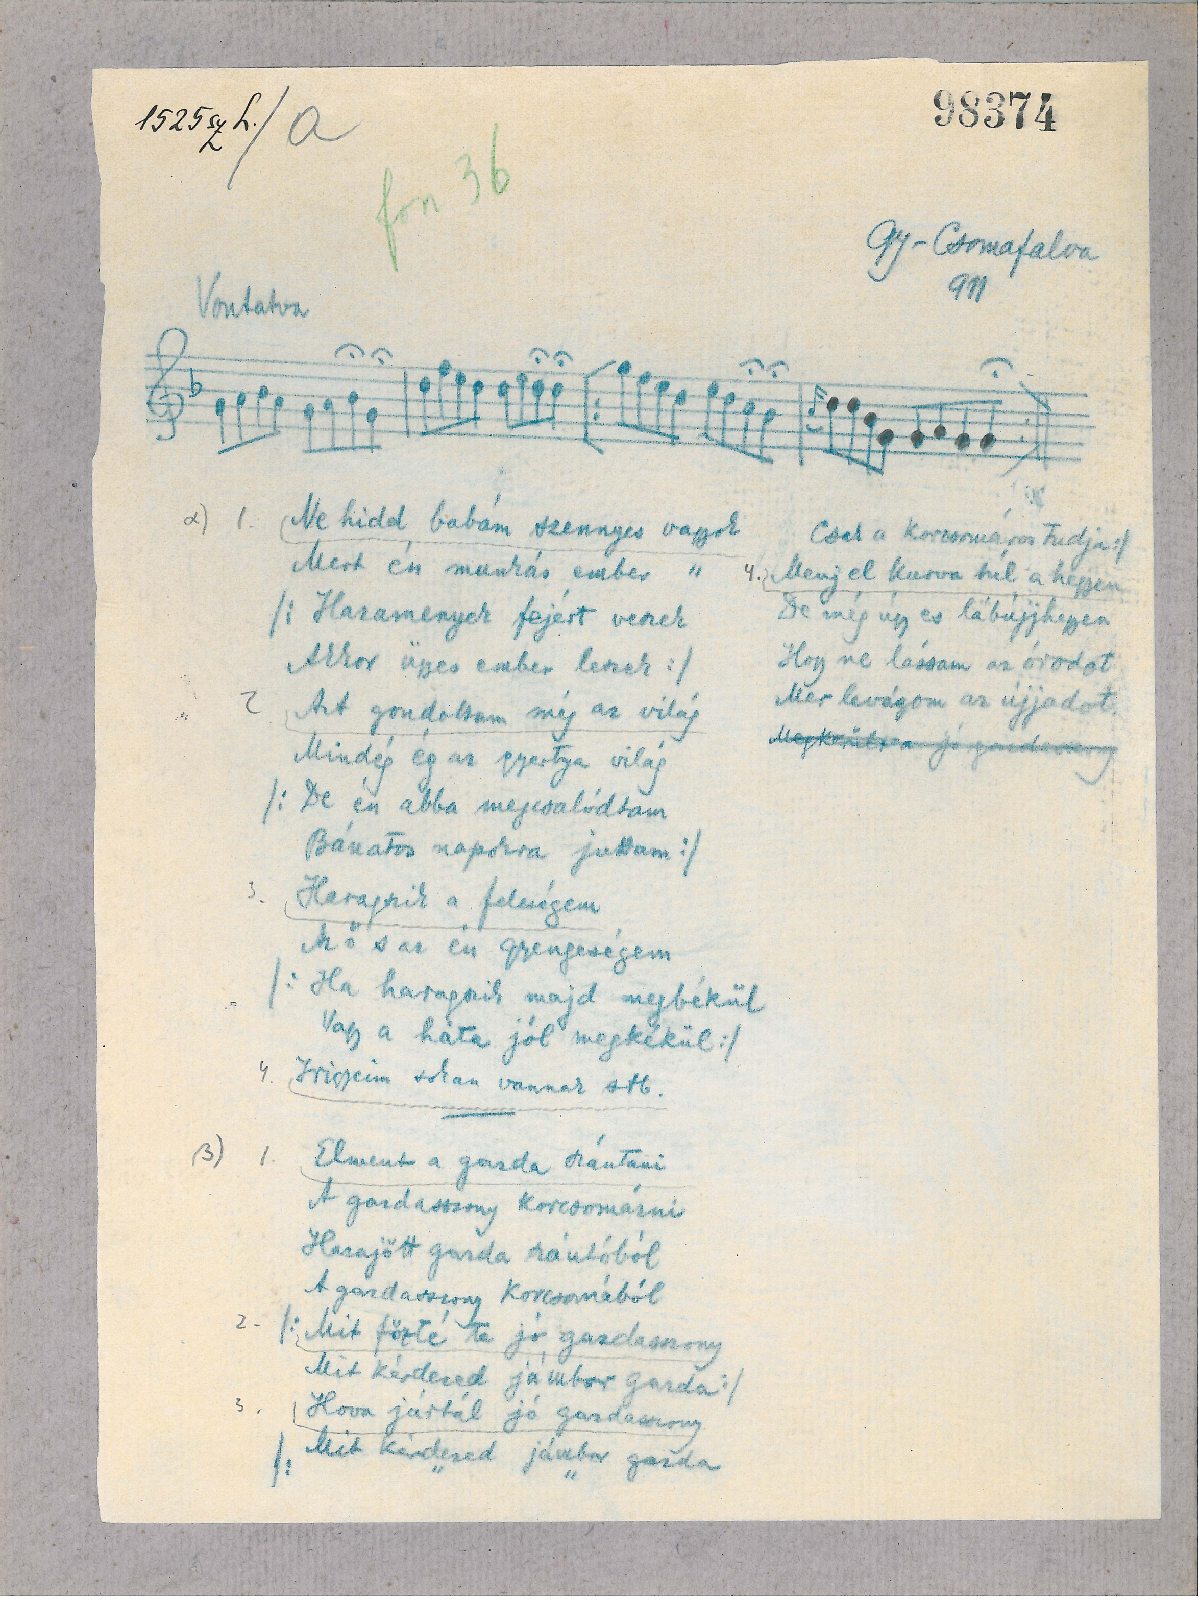 1525 sz L. / a
98374
fon 36
Gy-Csomafalva
911
Vontatva
α) 1. Ne hidd babám szennyes vagyok
Mert én munkás ember "
/: Hazamenyek fejért veszek
Akkor ügyes ember leszek :/
2 Azt gondoltam még az világ
Mindég ég az gyertya világ
/: De én abba megcsalódtam
Bánatos napokra juttam :/
3. Haragszik a feleségem
Az ő s az én gyengeségem
/: Ha haragszik majd megbékül
Vagy a háta jól megkékül :/
4. Irigyeim sokan vannak stb.
β) 1. Elment a gazda szántani
A gazdasszony korcsomázni
Hazajött gazda szántóból
A gazdasszony korcsomából
2- /: Mit főzté te jó gazdasszony
Mit kérdezed jámbor gazda :/
3. Hova jártál jó gazdasszony
/: Mit kérdezed jámbor gazda
" "
Csak a korcsomáros tudja :/
4. Menj el kurva túl a hegyen
De még úgy es lábújjhegyen
Hogy ne lássam az órodot
Mer levágom az újjadot.
Megkerülsz jó gazdasszony